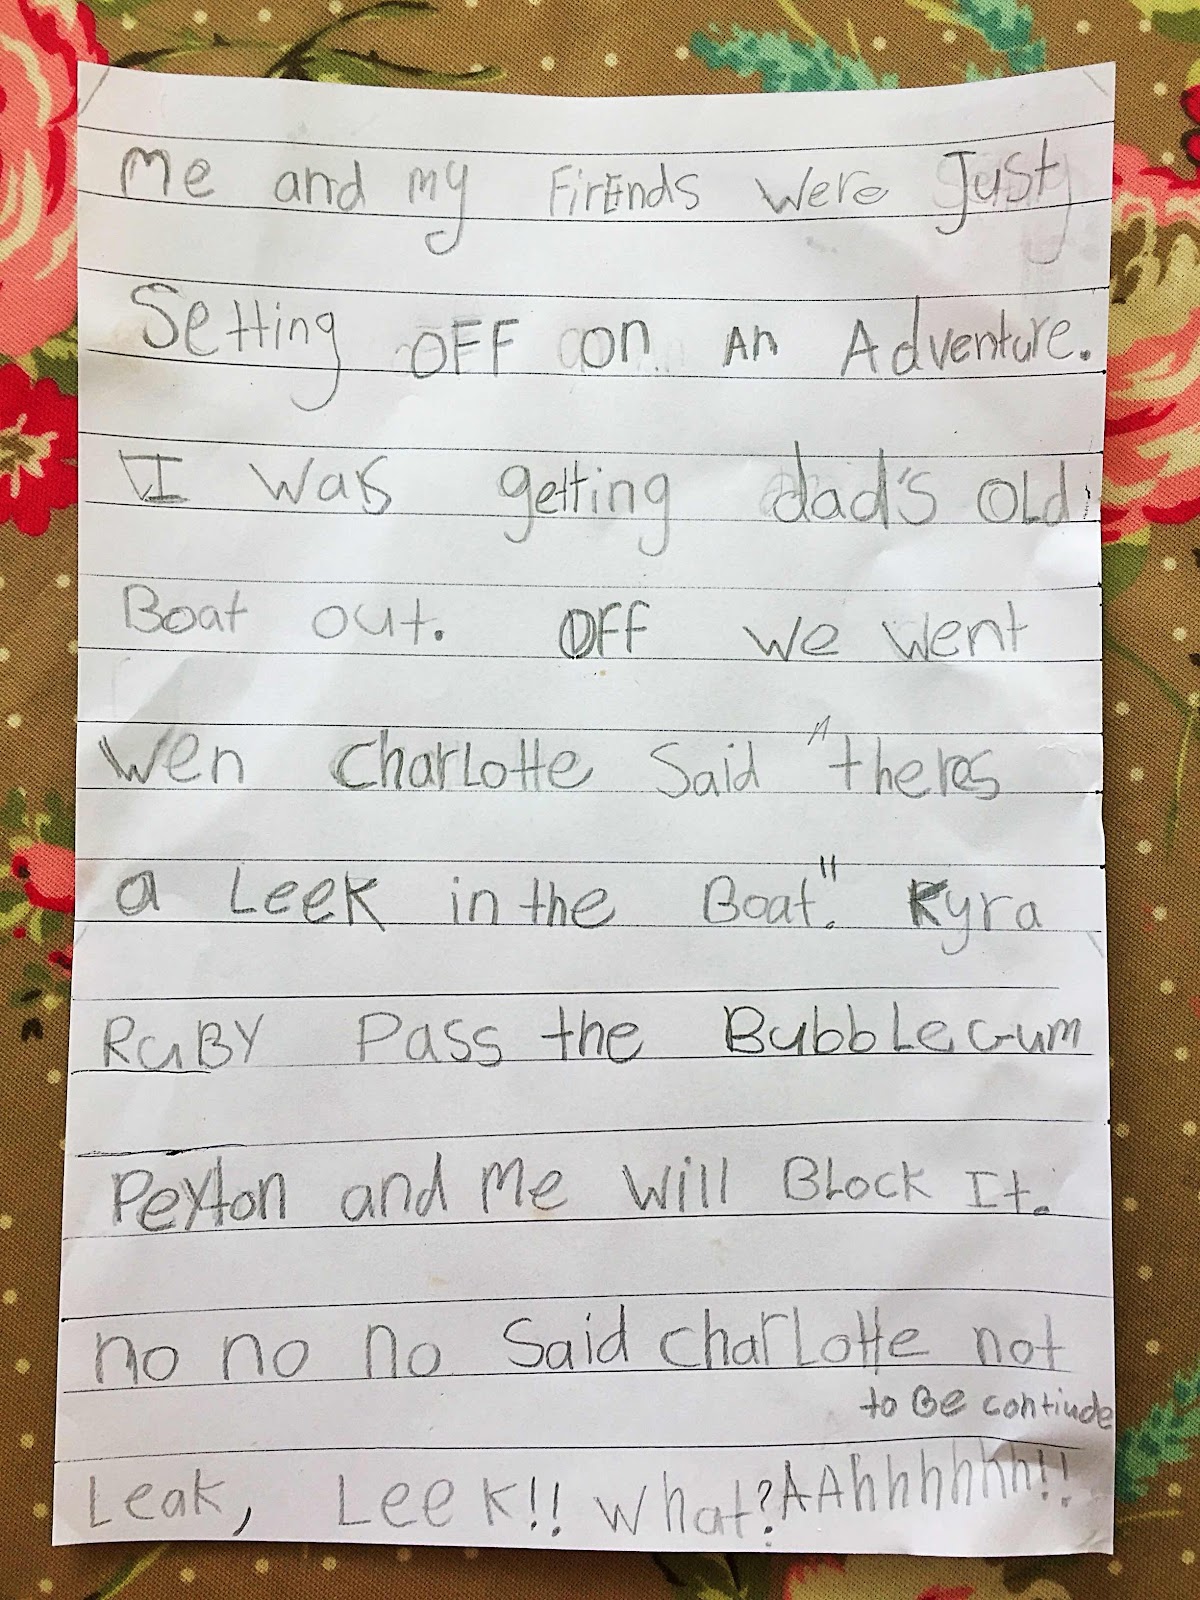 Me and my FirEnds were Just
Setting OFF on An Adventure.
I was getting dad's OLd
Boat out. OFF we went
wen CharLotte Said "theres
a LeeK in the Boat". Kyra
RuBY Pass the BubbLeGum
Peyton and Me will BLock It.
no no no Said CharLotte not
to Be contiude
Leak, LeeK!! what? AAhhhhhhh!!